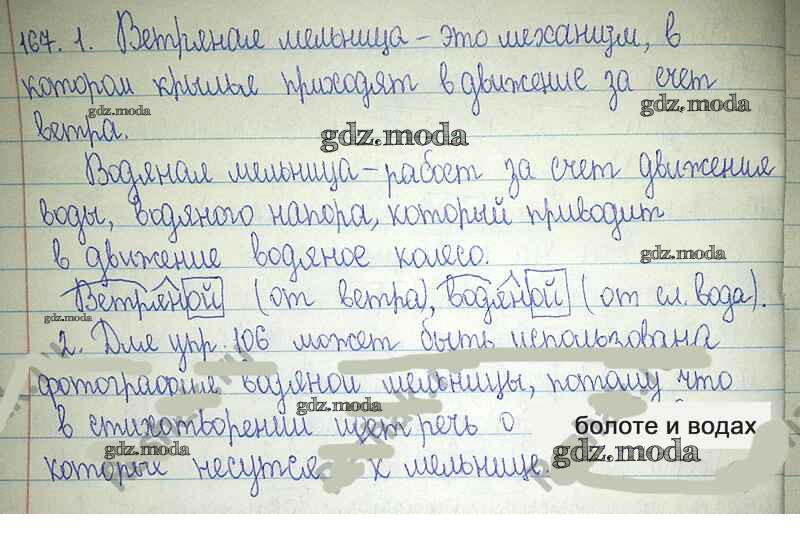 167. 1. Ветряная мельница – это механизм, в
котором крылья приходят в движение за счет
gdz.moda
gdz.moda
ветра.
gdz.moda
Водяная мельница – рабоет за счет движения
воды, водяного напора, который приводит
в движение водяное колесо.
gdz.moda
Ветряной (от ветра), водяной (от сл. вода).
gdz.moda
2. Для упр. 106 может быть использована
фотография водяной мельницы, потому что
gdz.moda
в стихотворении идет речь о болоте и водах
gdz.moda
gdz.moda
которых несутся к мельнице.